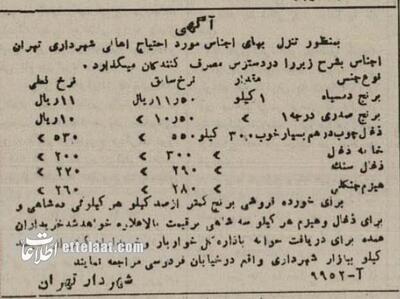 آگهی
بمنظور تنزل بهای اجناس مورد احتیاج اهالی شهرداری تهران
اجناس بشرح زیر را در دسترس مصرف کنندگان میگذارد.
نوع جنس مقدار نرخ سابق نرخ فعلی
برنج دمسیاه ۱ کیلو ۱۱٫۵۰ ریال ۱۱ ریال
برنج صدری درجه ۱ » ۱۰٫۵۰ » ۱۰ ریال
ذغال چوب درهم بسیار خوب ۳۰۰ کیلو ۵۵۰ » ۵۳۰ »
خاکه ذغال » ۳۰۰ » ۲۰۰ »
ذغال سنگ » ۲۹۰ » ۲۷۰ »
هیزم جنگلی » ۲۸۰ » ۲۶۰ »
برای خورده فروشی برنج کمتر از صد کیلو هر کیلوئی ده شاهی و
برای ذغال و هیزم هر کیلو سه شاهی بر قیمت بالا علاوه خواهد شد خریداران
عمده برای دریافت حواله باداره کل خواربار و
کیلو ببازار شهرداری واقع در خیابان فردوسی مراجعه نمایند
آ-۹۹۵۲
شهردار تهران
اطلاعات
ettelaat.com